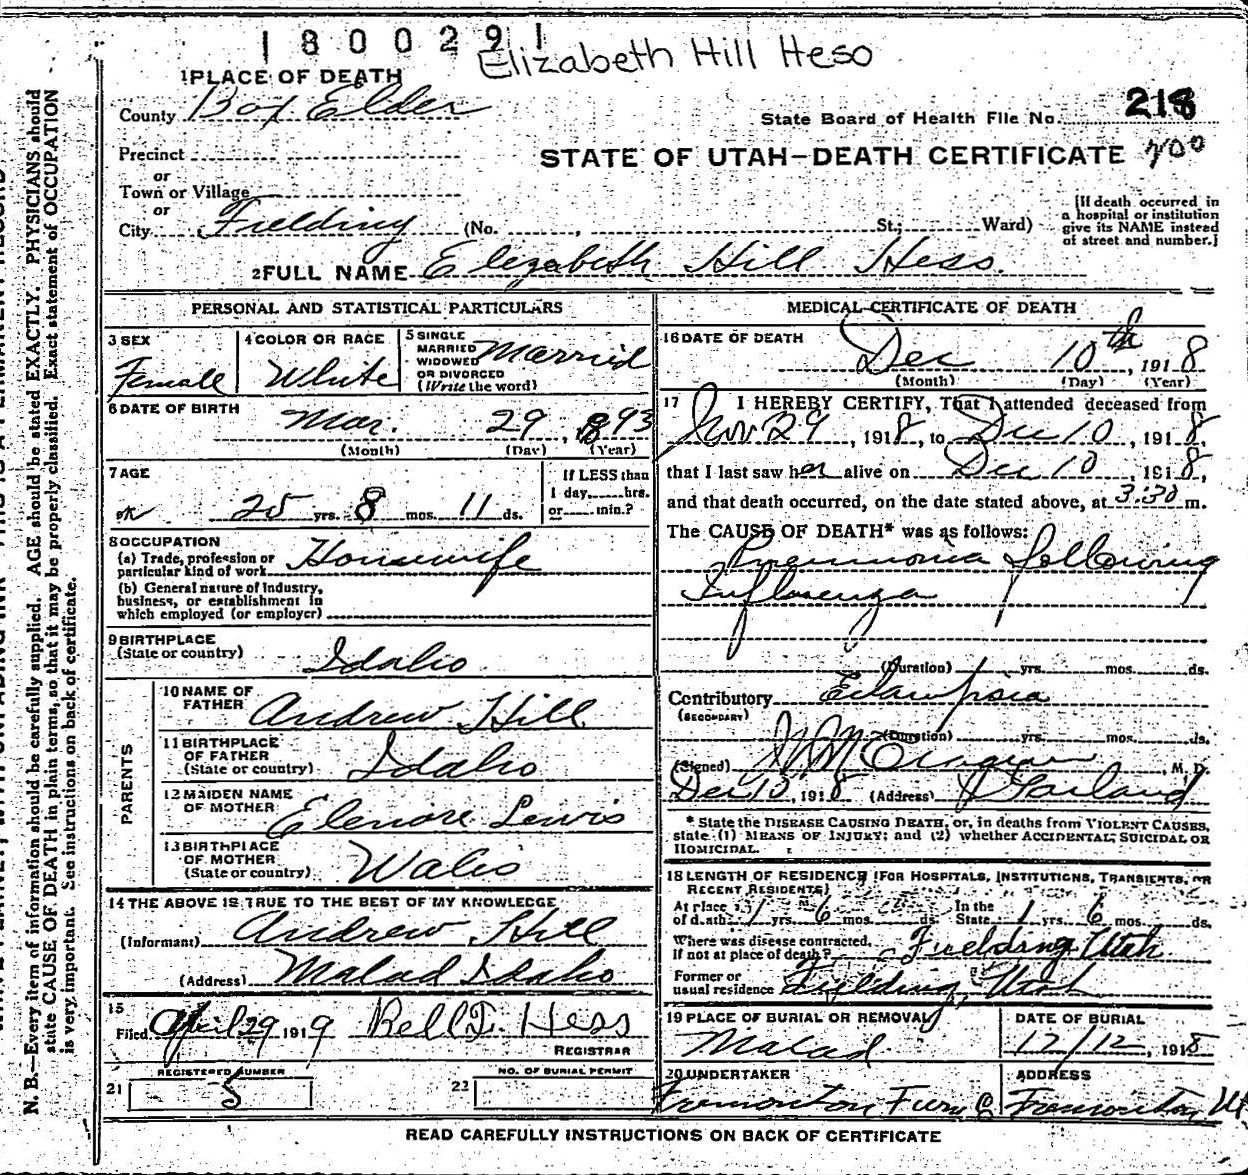 1800291
Elizabeth Hill Heso
1 PLACE OF DEATH
County Box Elder
State Board of Health File No. 218
Precinct
STATE OF UTAH—DEATH CERTIFICATE 700
or
Town or Village
or
City Fielding (No. , St.; Ward)
[If death occurred in
a hospital or institution
give its NAME instead
of street and number.]
2 FULL NAME Elizabeth Hill Hess.
PERSONAL AND STATISTICAL PARTICULARS
3 SEX
Female
4 COLOR OR RACE
White
5 SINGLE
MARRIED
WIDOWED
OR DIVORCED
(Write the word)
Married
6 DATE OF BIRTH
Mar. 29, 1893
(Month) (Day) (Year)
7 AGE
ok 25 yrs. 8 mos. 11 ds.
If LESS than
1 day, hrs.
or min.?
8 OCCUPATION
(a) Trade, profession or
particular kind of work Housewife
(b) General nature of industry,
business, or establishment in
which employed (or employer)
9 BIRTHPLACE
(State or country) Idaho
PARENTS
10 NAME OF
FATHER Andrew Hill
11 BIRTHPLACE
OF FATHER
(State or country) Idaho
12 MAIDEN NAME
OF MOTHER Elenore Lewis
13 BIRTHPLACE
OF MOTHER
(State or country) Wales
14 THE ABOVE IS TRUE TO THE BEST OF MY KNOWLEDGE
(Informant) Andrew Hill
(Address) Malad Idaho
15
Filed April 29 1919 Rell I. Hess
REGISTRAR
REGISTERED NUMBER
21 5
NO. OF BURIAL PERMIT
22
MEDICAL CERTIFICATE OF DEATH
16 DATE OF DEATH
Dec 10th, 1918
(Month) (Day) (Year)
17 I HEREBY CERTIFY, That I attended deceased from
Nov 29, 1918, to Dec 10, 1918,
that I last saw her alive on Dec 10, 1918,
and that death occurred, on the date stated above, at 3:30 m.
The CAUSE OF DEATH* was as follows:
Pneumonia following
Influenza
(Duration) yrs. mos. ds.
Contributory Eclampsia
(SECONDARY)
(Duration) yrs. mos. ds.
(Signed) , M. D.
Dec 10, 1918 (Address) Garland
* State the DISEASE CAUSING DEATH, or, in deaths from VIOLENT CAUSES,
state (1) MEANS OF INJURY; and (2) whether ACCIDENTAL, SUICIDAL OR
HOMICIDAL.
18 LENGTH OF RESIDENCE (FOR HOSPITALS, INSTITUTIONS, TRANSIENTS, OR
RECENT RESIDENTS)
At place of death 1 yrs. 6 mos. ds. In the State 1 yrs. 6 mos. ds.
Where was disease contracted,
if not at place of death? Fielding Utah
Former or
usual residence Fielding, Utah
19 PLACE OF BURIAL OR REMOVAL
Malad
DATE OF BURIAL
12/12, 1918
20 UNDERTAKER
Tremonton Furn Co
ADDRESS
Tremonton Ut
READ CAREFULLY INSTRUCTIONS ON BACK OF CERTIFICATE
N. B.—Every item of information should be carefully supplied. AGE should be stated EXACTLY. PHYSICIANS should
state CAUSE OF DEATH in plain terms, so that it may be properly classified. Exact statement of OCCUPATION
is very important. See instructions on back of certificate.